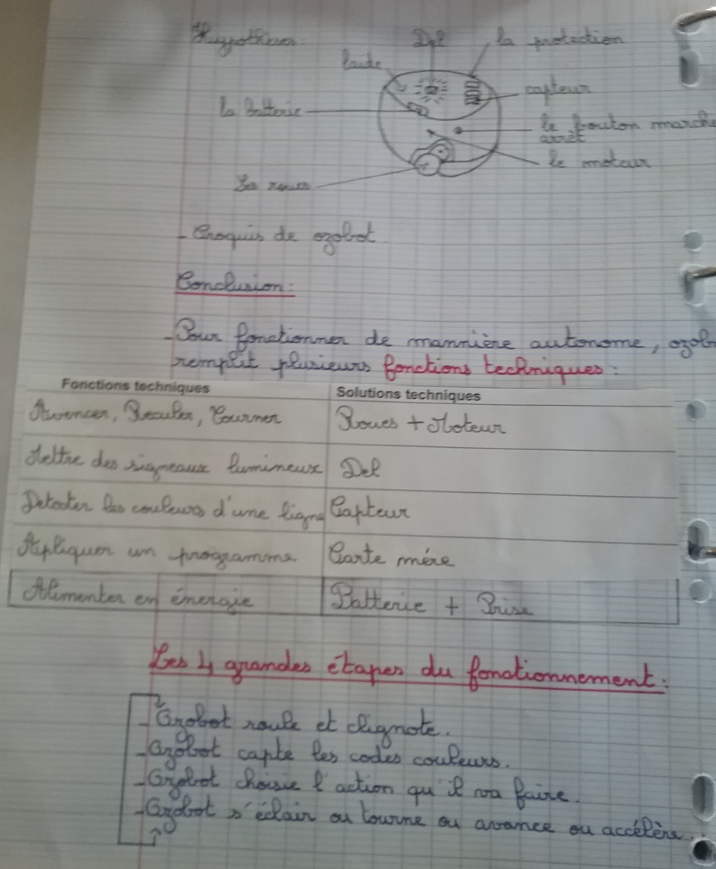 Hypothèses:
Del
la protection
laide
capteur
la Batterie
le bouton marche
arrêt
le moteur
Les roues
- Croquis de ozobot
Conclusion:
- Pour fonctionner de mannière autonome, ozob
remplit plusieurs fonctions techniques :
Fonctions techniques
Solutions techniques
Avencer, Reculer, Tourner
Roues + Moteur
Mettre des signeaux lumineux
Del
Detecter les couleurs d'une ligne
Capteur
Apliquer un programme
Carte mére
Alimenter en énergie
Batterie + Prise
Les 4 grandes étapes du fonctionnement :
- Ozobot roule et clignote.
- Ozobot capte les codes couleurs.
- Ozobot choisie l'action qu'il va faire.
- Ozobot s'éclair ou tourne ou avance ou accélèra..